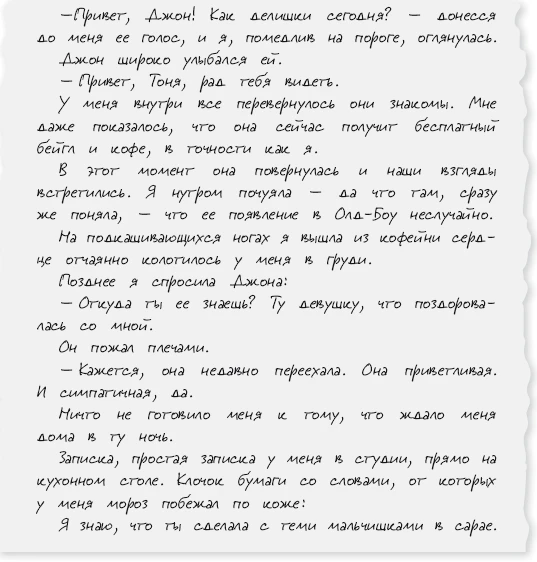 — Привет, Джон! Как делишки сегодня? — донесся
до меня ее голос, и я, помедлив на пороге, оглянулась.
Джон широко улыбался ей.
— Привет, Тоня, рад тебя видеть.
У меня внутри все перевернулось они знакомы. Мне
даже показалось, что она сейчас получит бесплатный
бейгл и кофе, в точности как я.
В этот момент она повернулась и наши взгляды
встретились. Я нутром почуяла — да что там, сразу
же поняла, — что ее появление в Олд-Боу неслучайно.
На подкашивающихся ногах я вышла из кофейни серд-
це отчаянно колотилось у меня в груди.
Позднее я спросила Джона:
— Откуда ты ее знаешь? Ту девушку, что поздорова-
лась со мной.
Он пожал плечами.
— Кажется, она недавно переехала. Она приветливая.
И симпатичная, да.
Ничто не готовило меня к тому, что ждало меня
дома в ту ночь.
Записка, простая записка у меня в студии, прямо на
кухонном столе. Клочок бумаги со словами, от которых
у меня мороз побежал по коже:
Я знаю, что ты сделала с теми мальчишками в сарае.